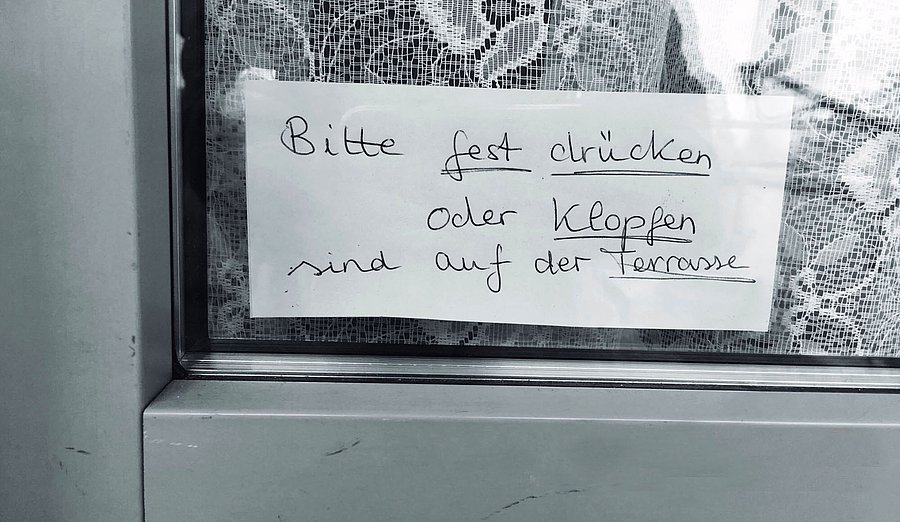 Bitte fest drücken
oder Klopfen
sind auf der Terrasse